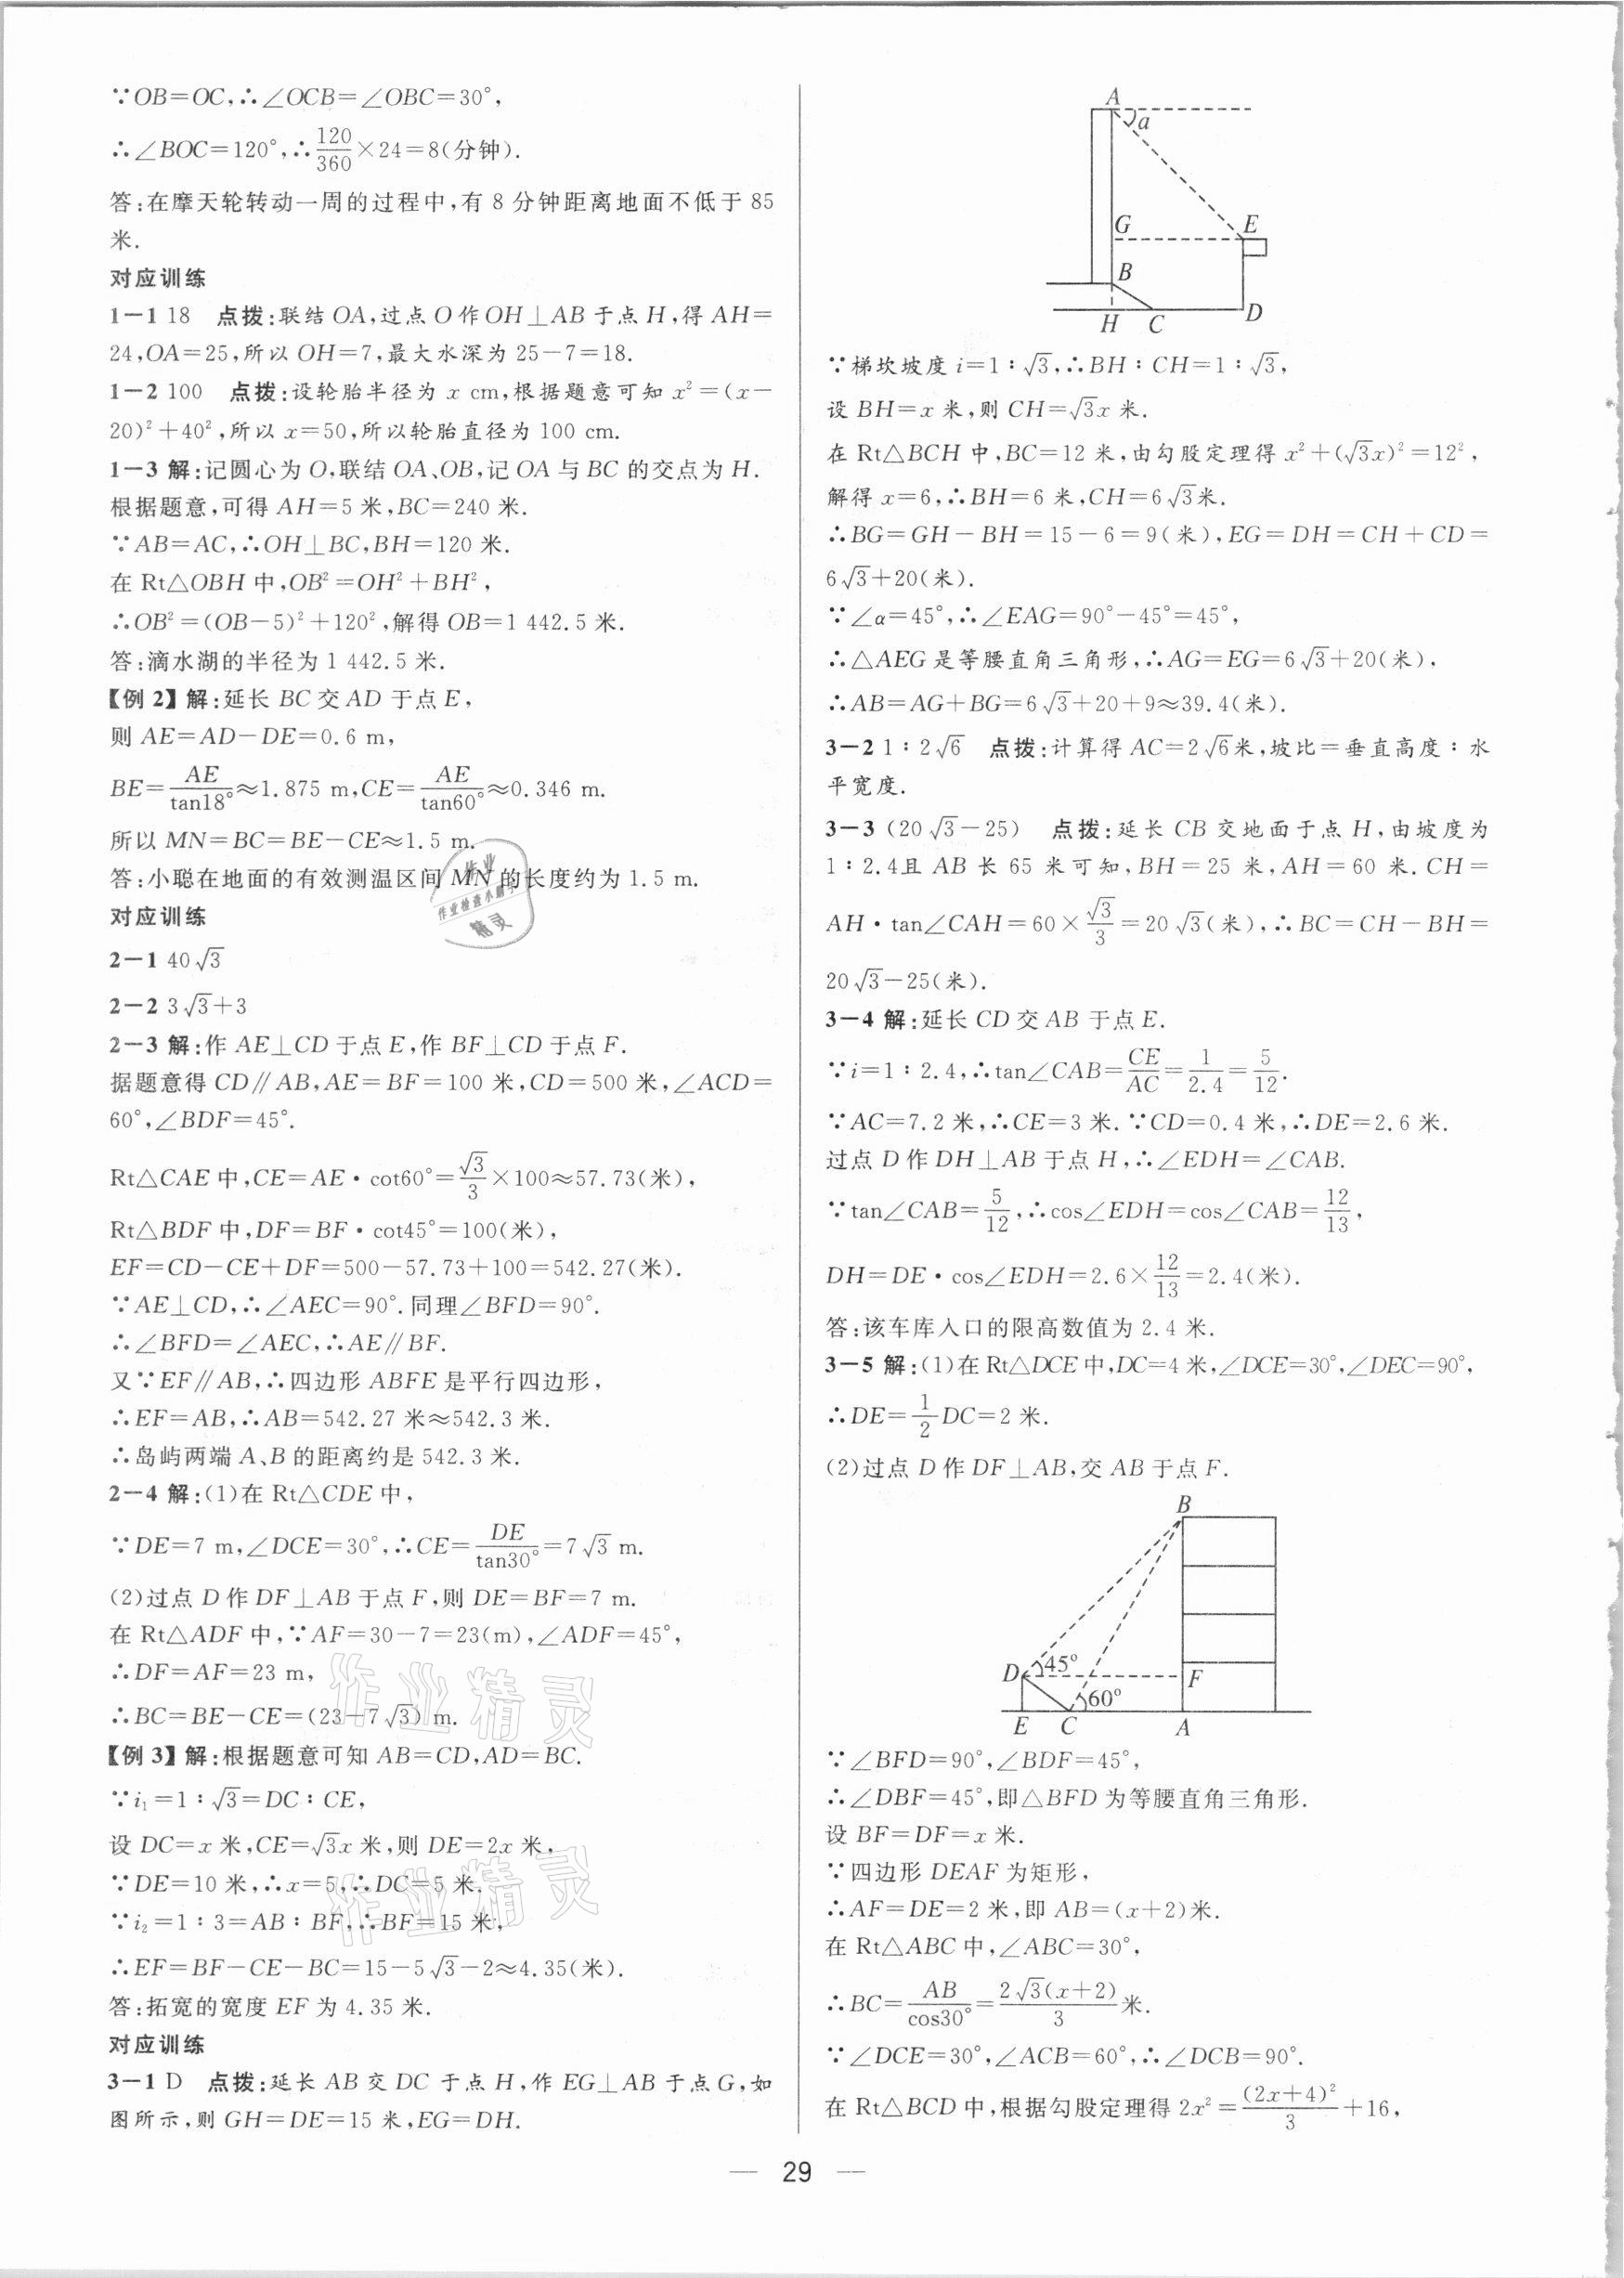 ∵OB=OC,∴∠OCB=∠OBC=30°,
∴∠BOC=120°,∴120/360×24=8(分钟).
答:在摩天轮转动一周的过程中,有 8 分钟距离地面不低于 85
米.
对应训练
1-1 18 点拨:联结OA,过点O作OH⊥AB于点H,得AH=
24,OA=25,所以OH=7,最大水深为25-7=18.
1-2 100 点拨:设轮胎半径为 x cm,根据题意可知 x²=(x-
20)²+40²,所以 x=50,所以轮胎直径为 100 cm.
1-3 解:记圆心为O,联结OA、OB,记OA与BC的交点为H.
根据题意,可得 AH=5 米,BC=240 米.
∵AB=AC,∴OH⊥BC,BH=120 米.
在 Rt△OBH 中,OB²=OH²+BH²,
∴OB²=(OB-5)²+120²,解得 OB=1 442.5 米.
答:滴水湖的半径为 1 442.5 米.
【例 2】解:延长 BC 交 AD 于点 E,
则 AE=AD-DE=0.6 m,
BE=AE/tan18°≈1.875 m,CE=AE/tan60°≈0.346 m.
所以 MN=BC=BE-CE≈1.5 m.
答:小聪在地面的有效测温区间 MN 的长度约为 1.5 m.
对应训练
2-1 40√3
2-2 3√3+3
2-3 解:作 AE⊥CD 于点 E,作 BF⊥CD 于点 F.
据题意得 CD∥AB,AE=BF=100 米,CD=500 米,∠ACD=
60°,∠BDF=45°.
Rt△CAE 中,CE=AE·cot60°=√3/3×100≈57.73(米),
Rt△BDF 中,DF=BF·cot45°=100(米),
EF=CD-CE+DF=500-57.73+100=542.27(米).
∵AE⊥CD,∴∠AEC=90°.同理∠BFD=90°.
∴∠BFD=∠AEC,∴AE∥BF.
又∵EF∥AB,∴四边形 ABFE 是平行四边形,
∴EF=AB,∴AB=542.27 米≈542.3 米.
∴岛屿两端 A、B 的距离约是 542.3 米.
2-4 解:(1)在 Rt△CDE 中,
∵DE=7 m,∠DCE=30°,∴CE=DE/tan30°=7√3 m.
(2)过点 D 作 DF⊥AB 于点 F,则 DE=BF=7 m.
在 Rt△ADF 中,∵AF=30-7=23(m),∠ADF=45°,
∴DF=AF=23 m,
∴BC=BE-CE=(23-7√3) m.
【例 3】解:根据题意可知 AB=CD,AD=BC.
∵i₁=1∶√3=DC∶CE,
设 DC=x 米,CE=√3x 米,则 DE=2x 米,
∵DE=10 米,∴x=5,∴DC=5 米.
∵i₂=1∶3=AB∶BF,∴BF=15 米,
∴EF=BF-CE-BC=15-5√3-2≈4.35(米).
答:拓宽的宽度 EF 为 4.35 米.
对应训练
3-1 D 点拨:延长 AB 交 DC 于点 H,作 EG⊥AB 于点 G,如
图所示,则 GH=DE=15 米,EG=DH.
A
α
G
E
B
H
C
D
∵梯坎坡度 i=1∶√3,∴BH∶CH=1∶√3,
设 BH=x 米,则 CH=√3x 米.
在 Rt△BCH 中,BC=12 米,由勾股定理得 x²+(√3x)²=12²,
解得 x=6,∴BH=6 米,CH=6√3米.
∴BG=GH-BH=15-6=9(米),EG=DH=CH+CD=
6√3+20(米).
∵∠α=45°,∴∠EAG=90°-45°=45°,
∴△AEG 是等腰直角三角形,∴AG=EG=6√3+20(米),
∴AB=AG+BG=6√3+20+9≈39.4(米).
3-2 1∶2√6 点拨:计算得 AC=2√6米,坡比=垂直高度∶水
平宽度.
3-3 (20√3-25) 点拨:延长 CB 交地面于点 H,由坡度为
1∶2.4且 AB 长 65 米可知,BH=25 米,AH=60 米.CH=
AH·tan∠CAH=60×√3/3=20√3(米),∴BC=CH-BH=
20√3-25(米).
3-4 解:延长 CD 交 AB 于点 E.
∵i=1∶2.4,∴tan∠CAB=CE/AC=1/2.4=5/12.
∵AC=7.2 米,∴CE=3米.∵CD=0.4 米,∴DE=2.6 米.
过点 D 作 DH⊥AB 于点 H,∴∠EDH=∠CAB.
∵tan∠CAB=5/12,∴cos∠EDH=cos∠CAB=12/13,
DH=DE·cos∠EDH=2.6×12/13=2.4(米).
答:该车库入口的限高数值为 2.4 米.
3-5 解:(1)在 Rt△DCE 中,DC=4 米,∠DCE=30°,∠DEC=90°,
∴DE=1/2DC=2 米.
(2)过点 D 作 DF⊥AB,交 AB 于点 F.
B
D
45°
F
60°
E
C
A
∵∠BFD=90°,∠BDF=45°,
∴∠DBF=45°,即△BFD 为等腰直角三角形.
设 BF=DF=x 米.
∵四边形 DEAF 为矩形,
∴AF=DE=2 米,即 AB=(x+2)米.
在 Rt△ABC 中,∠ABC=30°,
∴BC=AB/cos30°=2√3(x+2)/3米.
∵∠DCE=30°,∠ACB=60°,∴∠DCB=90°.
在 Rt△BCD 中,根据勾股定理得 2x²=(2x+4)²/3+16,
— 29 —
作业
作业检查小助手
精灵
作业精灵
作业精灵